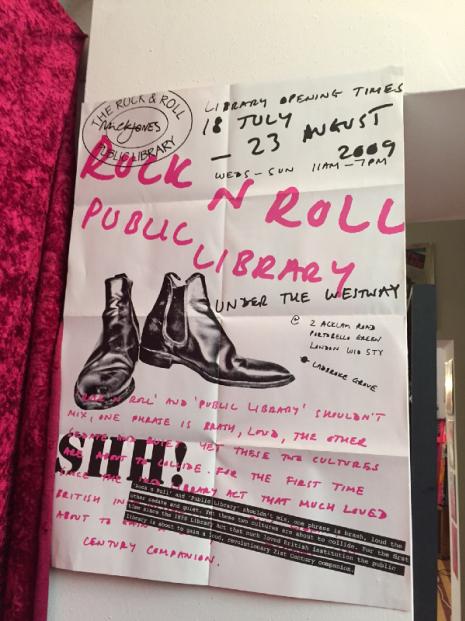 THE ROCK & ROLL
MICK JONES
PUBLIC LIBRARY
LIBRARY OPENING TIMES
18 JULY
– 23 AUGUST
2009
WEDS – SUN 11AM – 7PM
ROCK
N ROLL
PUBLIC
LIBRARY
UNDER THE WESTWAY
@ 2 ACKLAM ROAD
PORTOBELLO GREEN
LONDON W10 5TY
LADBROKE GROVE
'ROCK 'N' ROLL' AND 'PUBLIC LIBRARY' SHOULDN'T
MIX, ONE PHRASE IS BRASH, LOUD, THE OTHER
SEDATE AND QUIET. YET THESE TWO CULTURES
ARE ABOUT TO COLLIDE. FOR THE FIRST TIME
SHH!
SINCE THE LIBRARY ACT THAT MUCH LOVED
BRITISH
ABOUT TO
CENTURY COMPANION.
'Rock n Roll' and 'Public Library' shouldn't mix, one phrase is brash, loud the
other sedate and quiet. Yet these two cultures are about to collide. For the first
time since the Library Act that much loved British institution the public
library is about to gain a loud, revolutionary 21st Century companion.